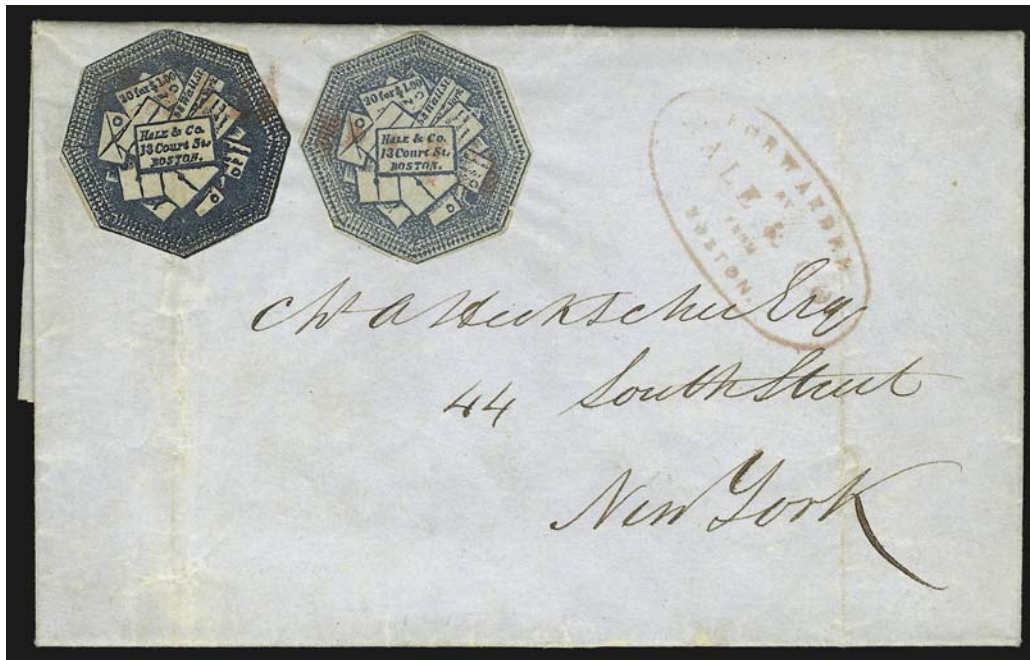 20 for $1.00
HALE & Co.
13 Court St.
BOSTON.
20 for $1.00
HALE & Co.
13 Court St.
BOSTON.
FORWARDED
BY
HALE &
FROM
BOSTON.
Ch A Heckscher Esq
44 South Street
New York